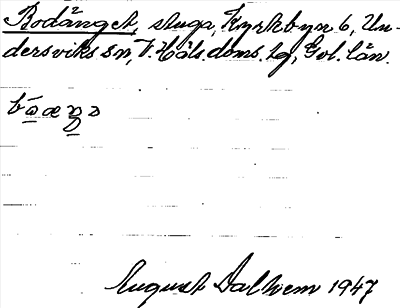 Bodänget, stuga, Kyrkbyn 6, Un-
dersviks sn, V. Häls. doms. tg, Gvl. län.
August Dalhem 1947